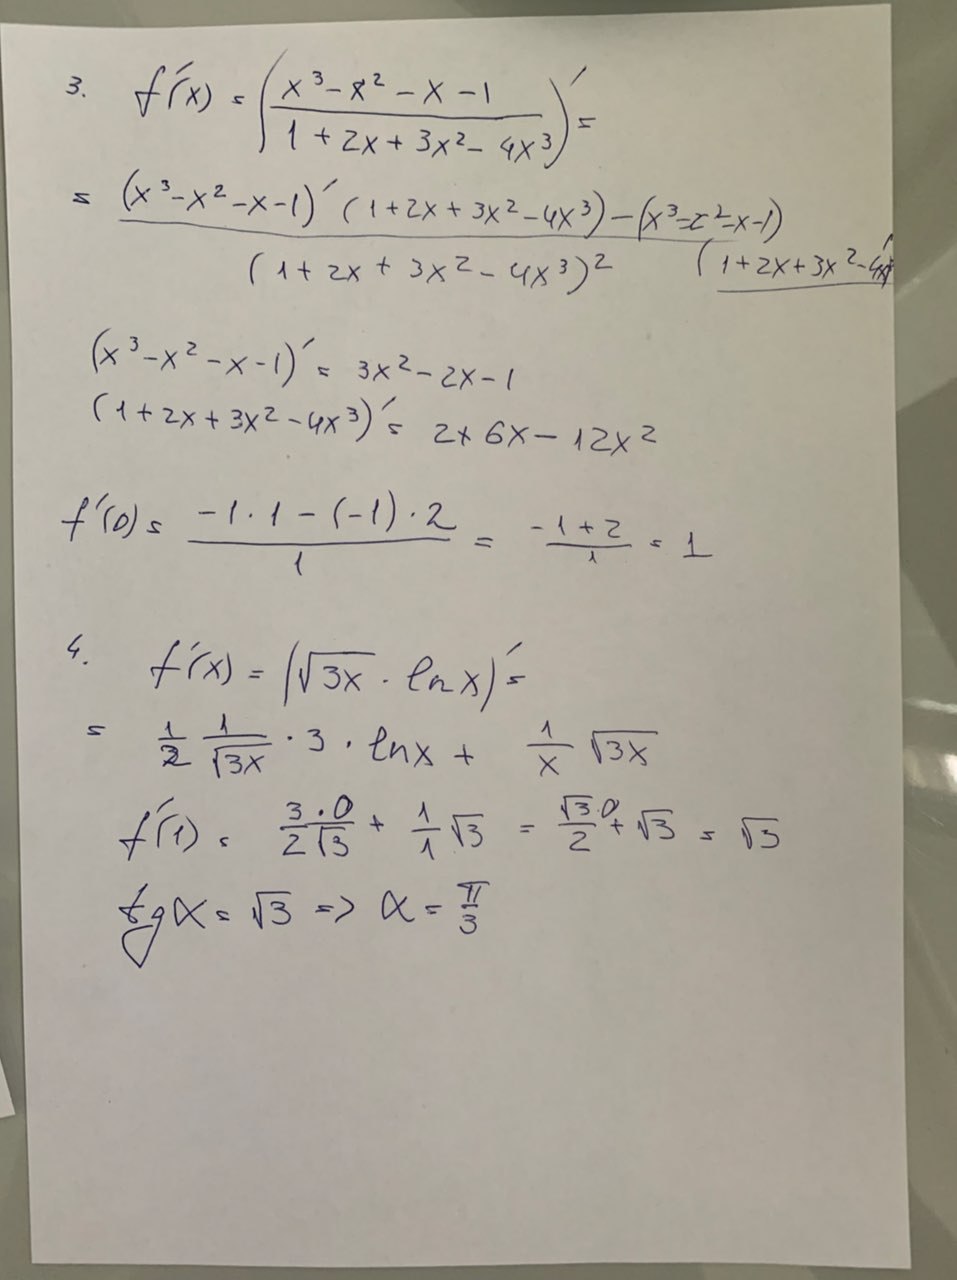 3. f'(x) = ((x³-x²-x-1)/(1+2x+3x²-4x³))' =
= ((x³-x²-x-1)' (1+2x+3x²-4x³) - (x³-x²-x-1) (1+2x+3x²-4x³)')/((1+2x+3x²-4x³)²)
(x³-x²-x-1)' = 3x²-2x-1
(1+2x+3x²-4x³)' = 2+6x-12x²
f'(0) = (-1·1-(-1)·2)/1 = (-1+2)/1 = 1
4. f'(x) = (√3x · ln x)' =
= 1/2 1/√3x · 3 · ln x + 1/x √3x
f'(1) = (3·0)/(2√3) + 1/1 √3 = (√3·0)/2 + √3 = √3
tg α = √3 => α = π/3